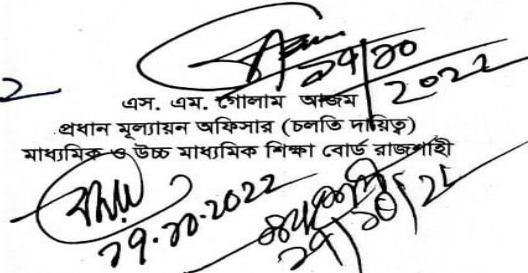 ২৭/১০
২০২২
এস. এম. গোলাম আজম
প্রধান মূল্যায়ন অফিসার (চলতি দায়িত্ব)
মাধ্যমিক ও উচ্চ মাধ্যমিক শিক্ষা বোর্ড রাজশাহী
২৭.১০.২০২২
২৭/১০/২২